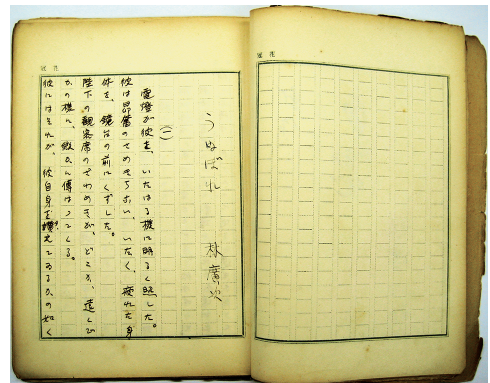 うぬぼれ
林廣次
(一)
電燈が彼を、いたはる様に明るく照した。
彼は昂奮のさめきらない、いたく、疲れた身
体を、鏡台の前にくずした。
階下の観客席のざわめきが、どこか、遠くで
かの様に、微かに傳はつてくる。
彼にはそれが、彼自身を讃えてゐるかの如く